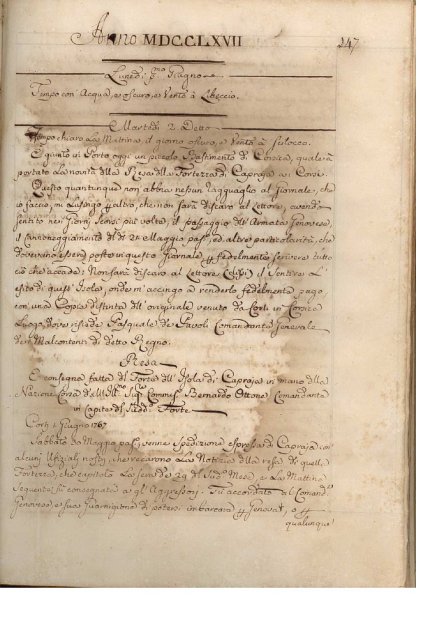 Anno MDCCLXVII
247
Lunedì p:mo Giugno
Tempo con Acqua, e oscuro, e Vento à Libeccio.
Martedì 2. Detto
Tempo chiaro La Mattina, il giorno oscuro, e Vento à Scilocco.
E giunto in Porto oggi un piccolo Bastimento di Corsica, quale à
portato La novità della Resa della Fortezza di Capraja a i Corsi.
Questo quantunque non abbia nessun ragguaglio al Giornale, che
io faccio, mi Lusingo altro, che non sarà discaro al Lettore, avendo
sentito nei Giorni più volte, il passaggio dell'Armata Genovese,
il cannoneggiamento del dì 21 Maggio pas:to, ed altre particolarità, che
dovevano essere poste in questo Giornale fedelmente scrivere tutto
ciò che accade. Non sarà discaro al Lettore il Sentire L'
esito di quest'Isola, onde m'accingo a renderlo fedelmente pago
in una Copia distinta dell'originale venuto da Corti in Corsica
Luogo, dove risiede Pasquale de Paoli Comandante Generale
de Malcontenti di detto Regno.
Resa
E consegna fatta del Forte dell'Isola di Capraja in mano della
Nazione Corsa dall' Ill:mo Sig: Commes: Bernardo Ottone Comandante
in Capite del Sud:o Forte
Corti 1 Giugno 1767
Sabbato 30 Maggio pas:to venne Spedizione espressa di Capraja con
alcuni Ufiziali nostri che recarono La Notizia della resa di quella
Fortezza, che capitolò La sera de 29 del Sud:o Mese, e La Mattina
Seguente fù consegnata a gl'Aggressori. Fù accordato al Comand:e
Genovese, e sua Guarnigione di potersi imbarcare Genova, o
qualunque